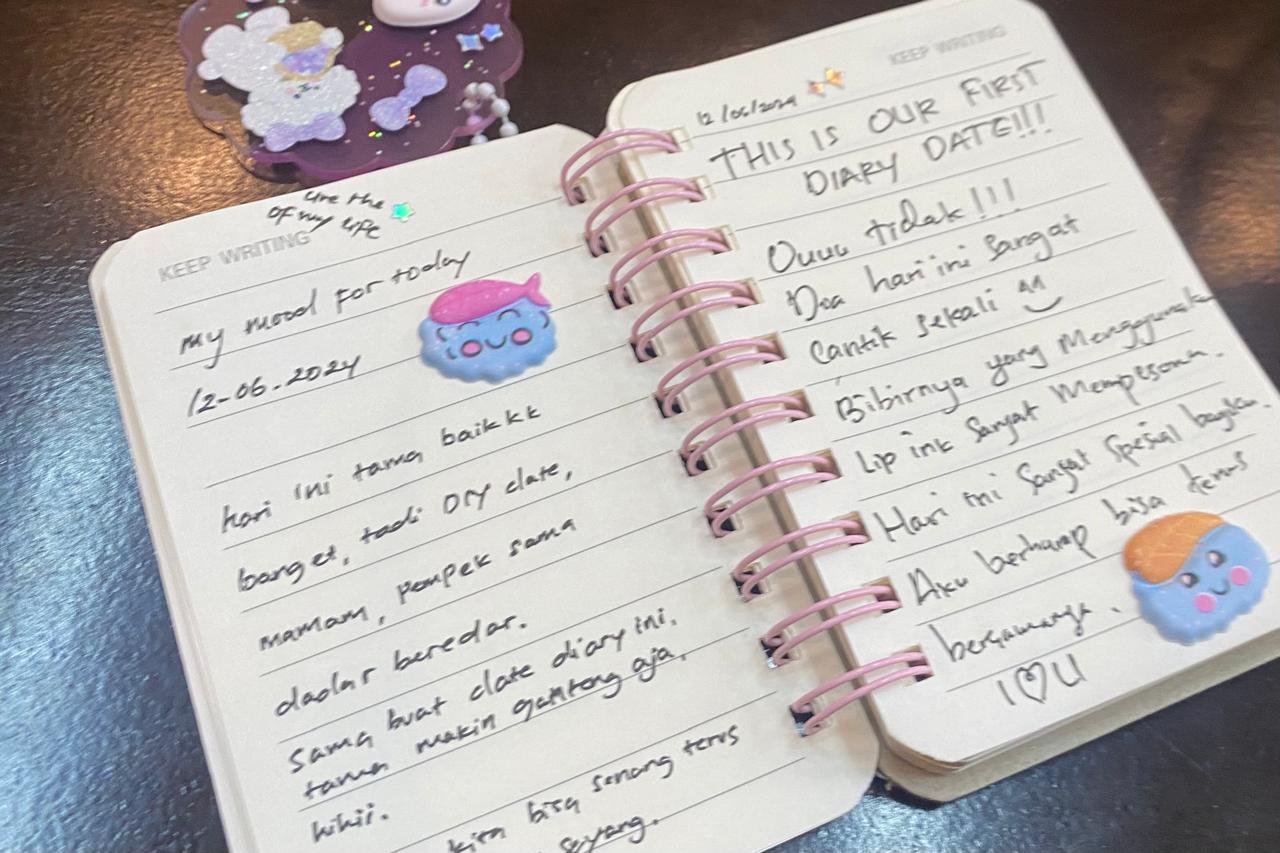 ure the
of my life
KEEP WRITING
my mood for today
12-06-2024
hari ini tama baikkk
banget, tadi DIY date,
mamam, pempek sama
dadar beredar.
sama buat date diary ini.
tama makin ganteng aja.
hihii.
kita bisa senang terus
sayang.
KEEP WRITING
12/06/2024
THIS IS OUR FIRST
DIARY DATE!!!
Ouuu tidak!!!
Doa hari ini sangat
Cantik sekali
Bibirnya yang Menggunak
Lip ink Sangat Mempesona.
Hari ini Sangat Spesial bagiku.
Aku berharap bisa terus
bersamanya.
I ♡ U